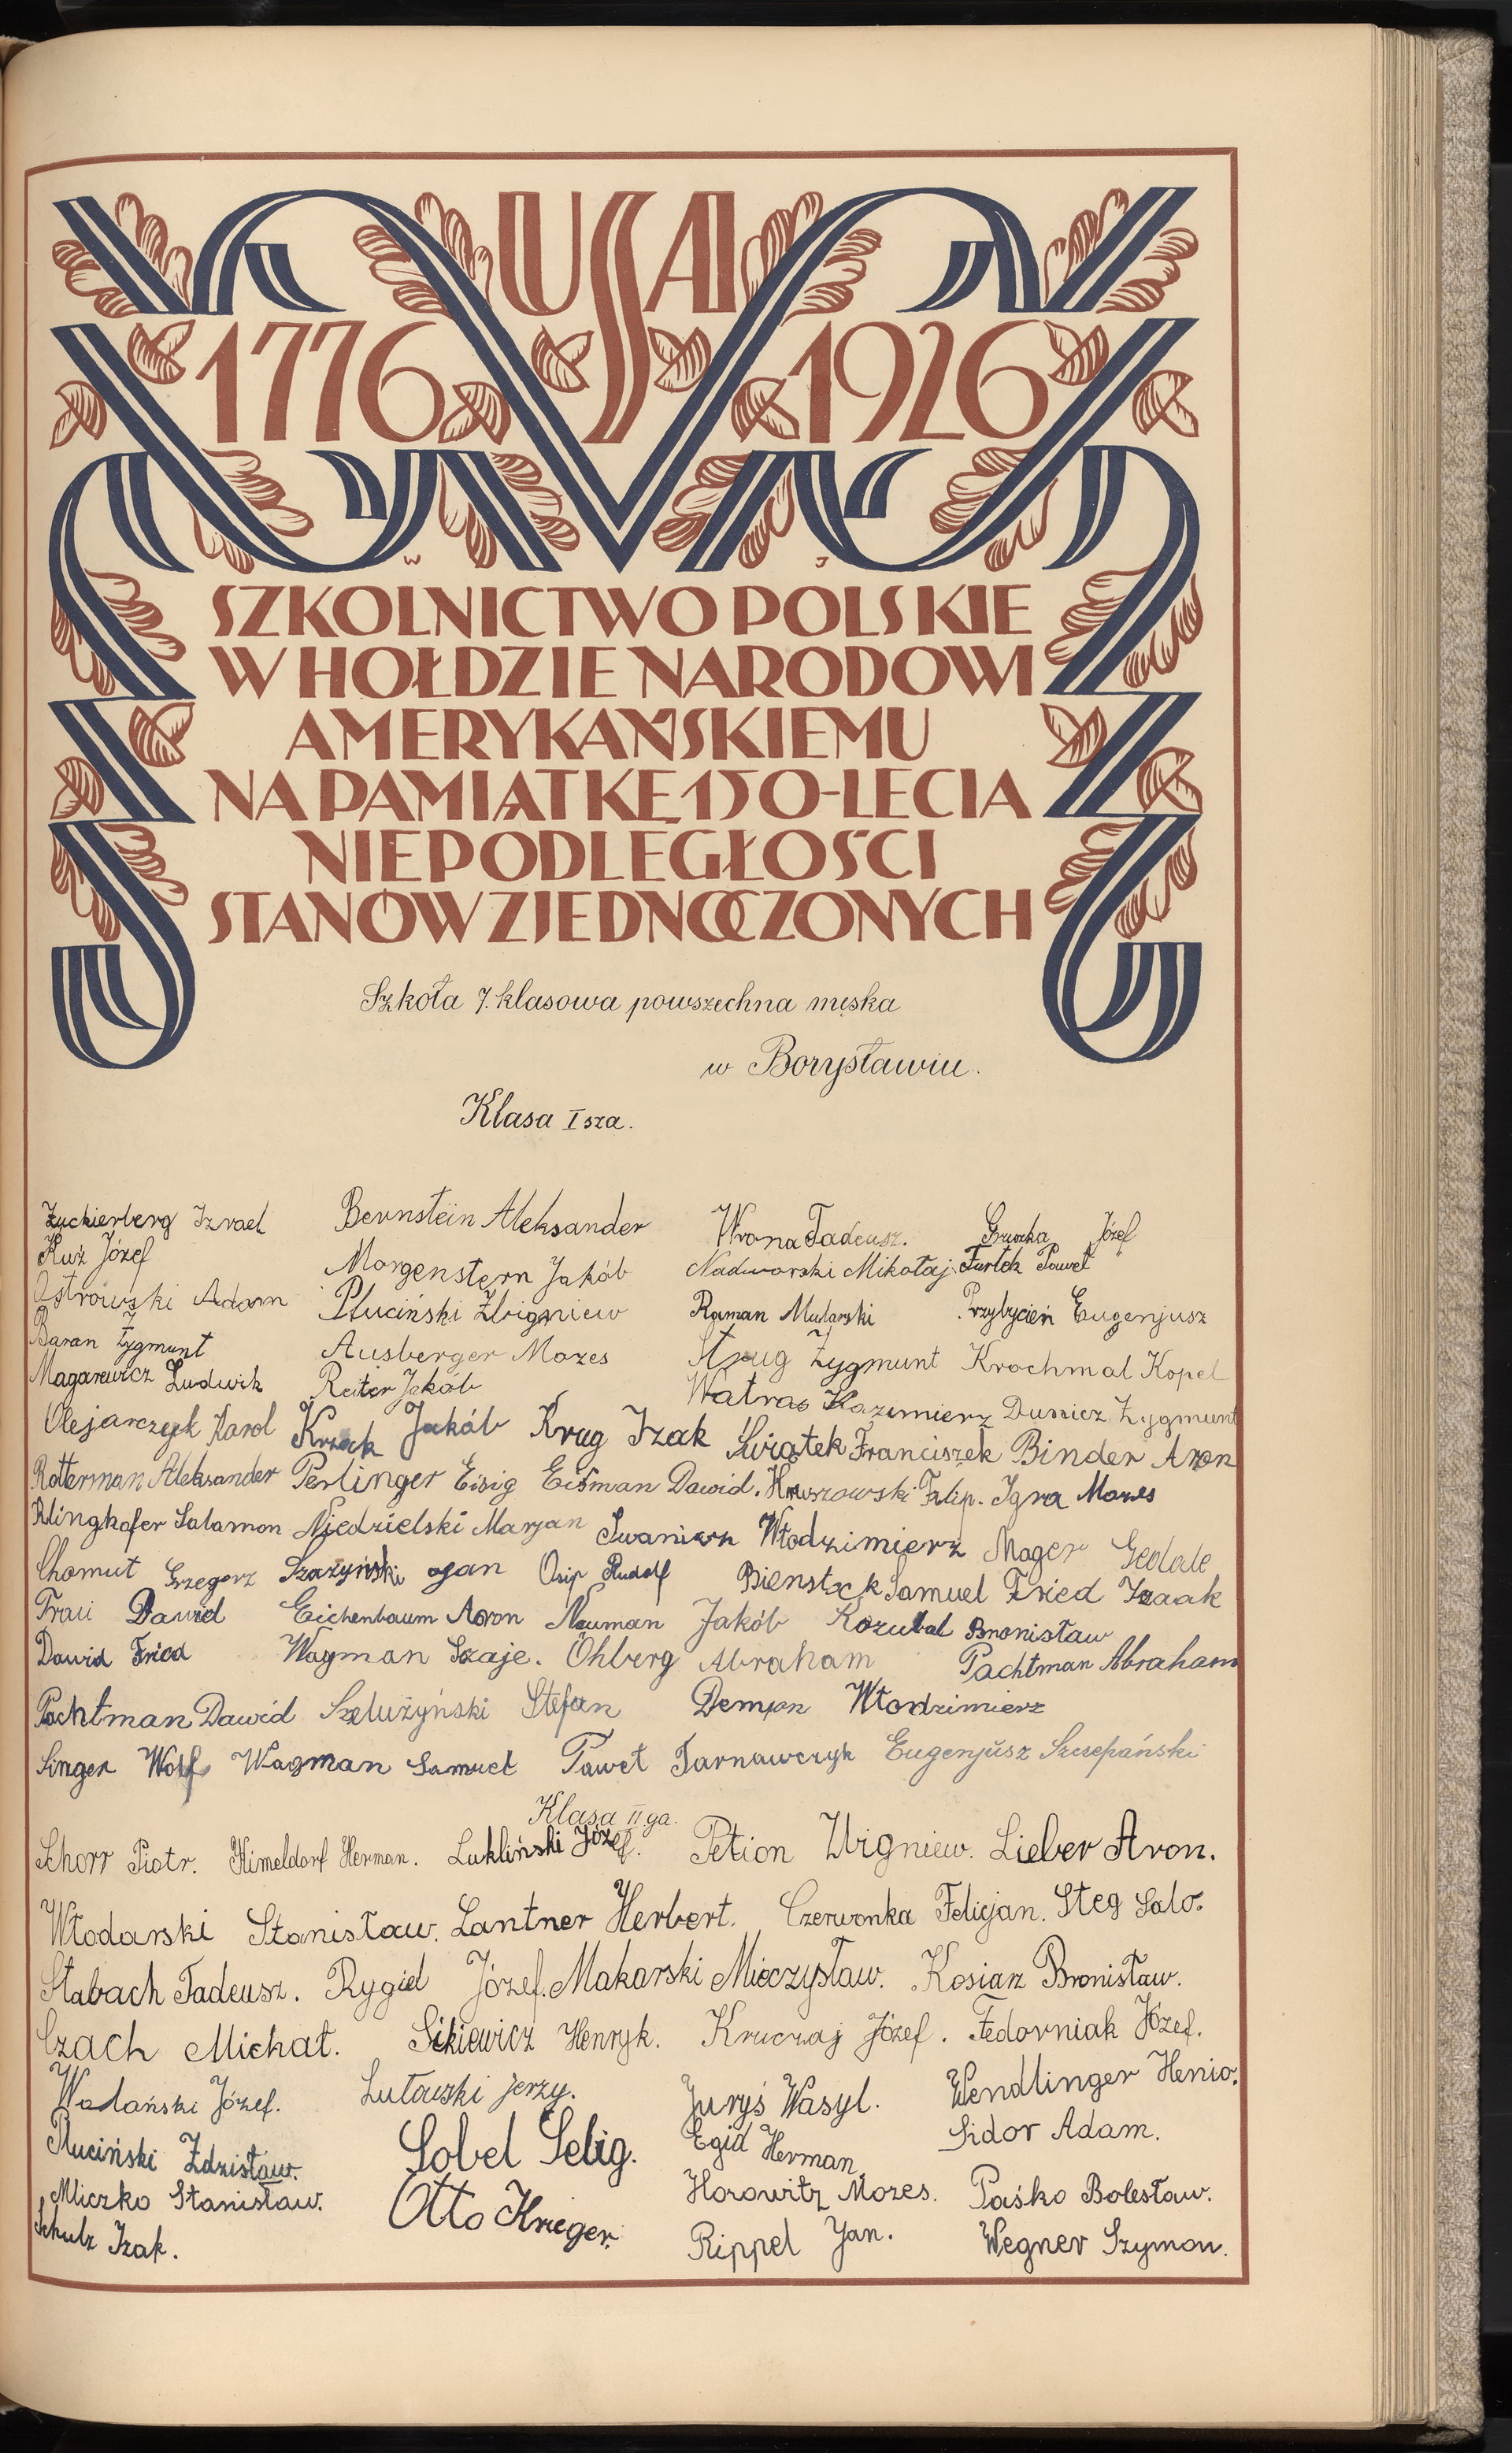 USA
1776 1926
W J
SZKOLNICTWO POLSKIE
W HOŁDZIE NARODOWI
AMERYKAŃSKIEMU
NA PAMIĄTKĘ 150-LECIA
NIEPODLEGŁOŚCI
STANÓW ZJEDNOCZONYCH
Szkoła 7. klasowa powszechna męska
w Borysławiu.
Klasa I sza.
Zuckierberg Izrael Bernstein Aleksander Wrona Tadeusz. Gruszka Józef
Kuź Józef Morgenstern Jakób Nadworski Mikołaj Furtek Paweł
Ostrowski Adam Płuciński Zbigniew Roman Mularski Przybycień Eugenjusz
Baran Zygmunt Ausberger Mozes Strug Zygmunt Krochmal Kopel
Magarewicz Ludwik Reiter Jakób Watras Kazimierz Dunicz Zygmunt
Olejarczyk Karol Krzak Jakób Krug Izak Świątek Franciszek Binder Aron
Rotterman Aleksander Perlinger Eisig Eisman Dawid. Hruszowski Filip. Igra Mozes
Klinghofer Salamon Niedzielski Marjan Iwaniczn Włodzimierz Mager Gedale
Chomut Grzegorz Szażyński Jan Osip Rudolf Bienstock Samuel Fried Izaak
Trau Dawid Eichenbaum Aron Neuman Jakób Kozubal Bronisław
Dawid Fried Wagman Szaje. Öhlberg Abraham Pachtman Abraham
Pachtman Dawid Szelużyński Stefan Demjan Włodzimierz
Singer Wolf Wagman Samuel Paweł Tarnawczyk Eugenjusz Szczepański
Klasa II ga.
Schorr Piotr. Himeldorf Herman. Lukliński Józef. Petion Zbigniew. Lieber Aron.
Włodarski Stanisław. Lantner Herbert. Czerwonka Felicjan. Steg Salo.
Stabach Tadeusz. Rygiel Józef. Makarski Mieczysław. Kosiarz Bronisław.
Czach Michał. Sikiewicz Henryk. Kruczaj Józef. Fedorniak Józef.
Wadański Józef. Lutawski Jerzy. Juryś Wasyl. Wendlinger Henio.
Płuciński Zdzisław. Sobel Selig. Egid Herman. Sidor Adam.
Miczko Stanisław. Otto Krieger. Horowitz Mozes. Paśko Bolesław.
Schulz Izak. Rippel Jan. Wegner Szymon.